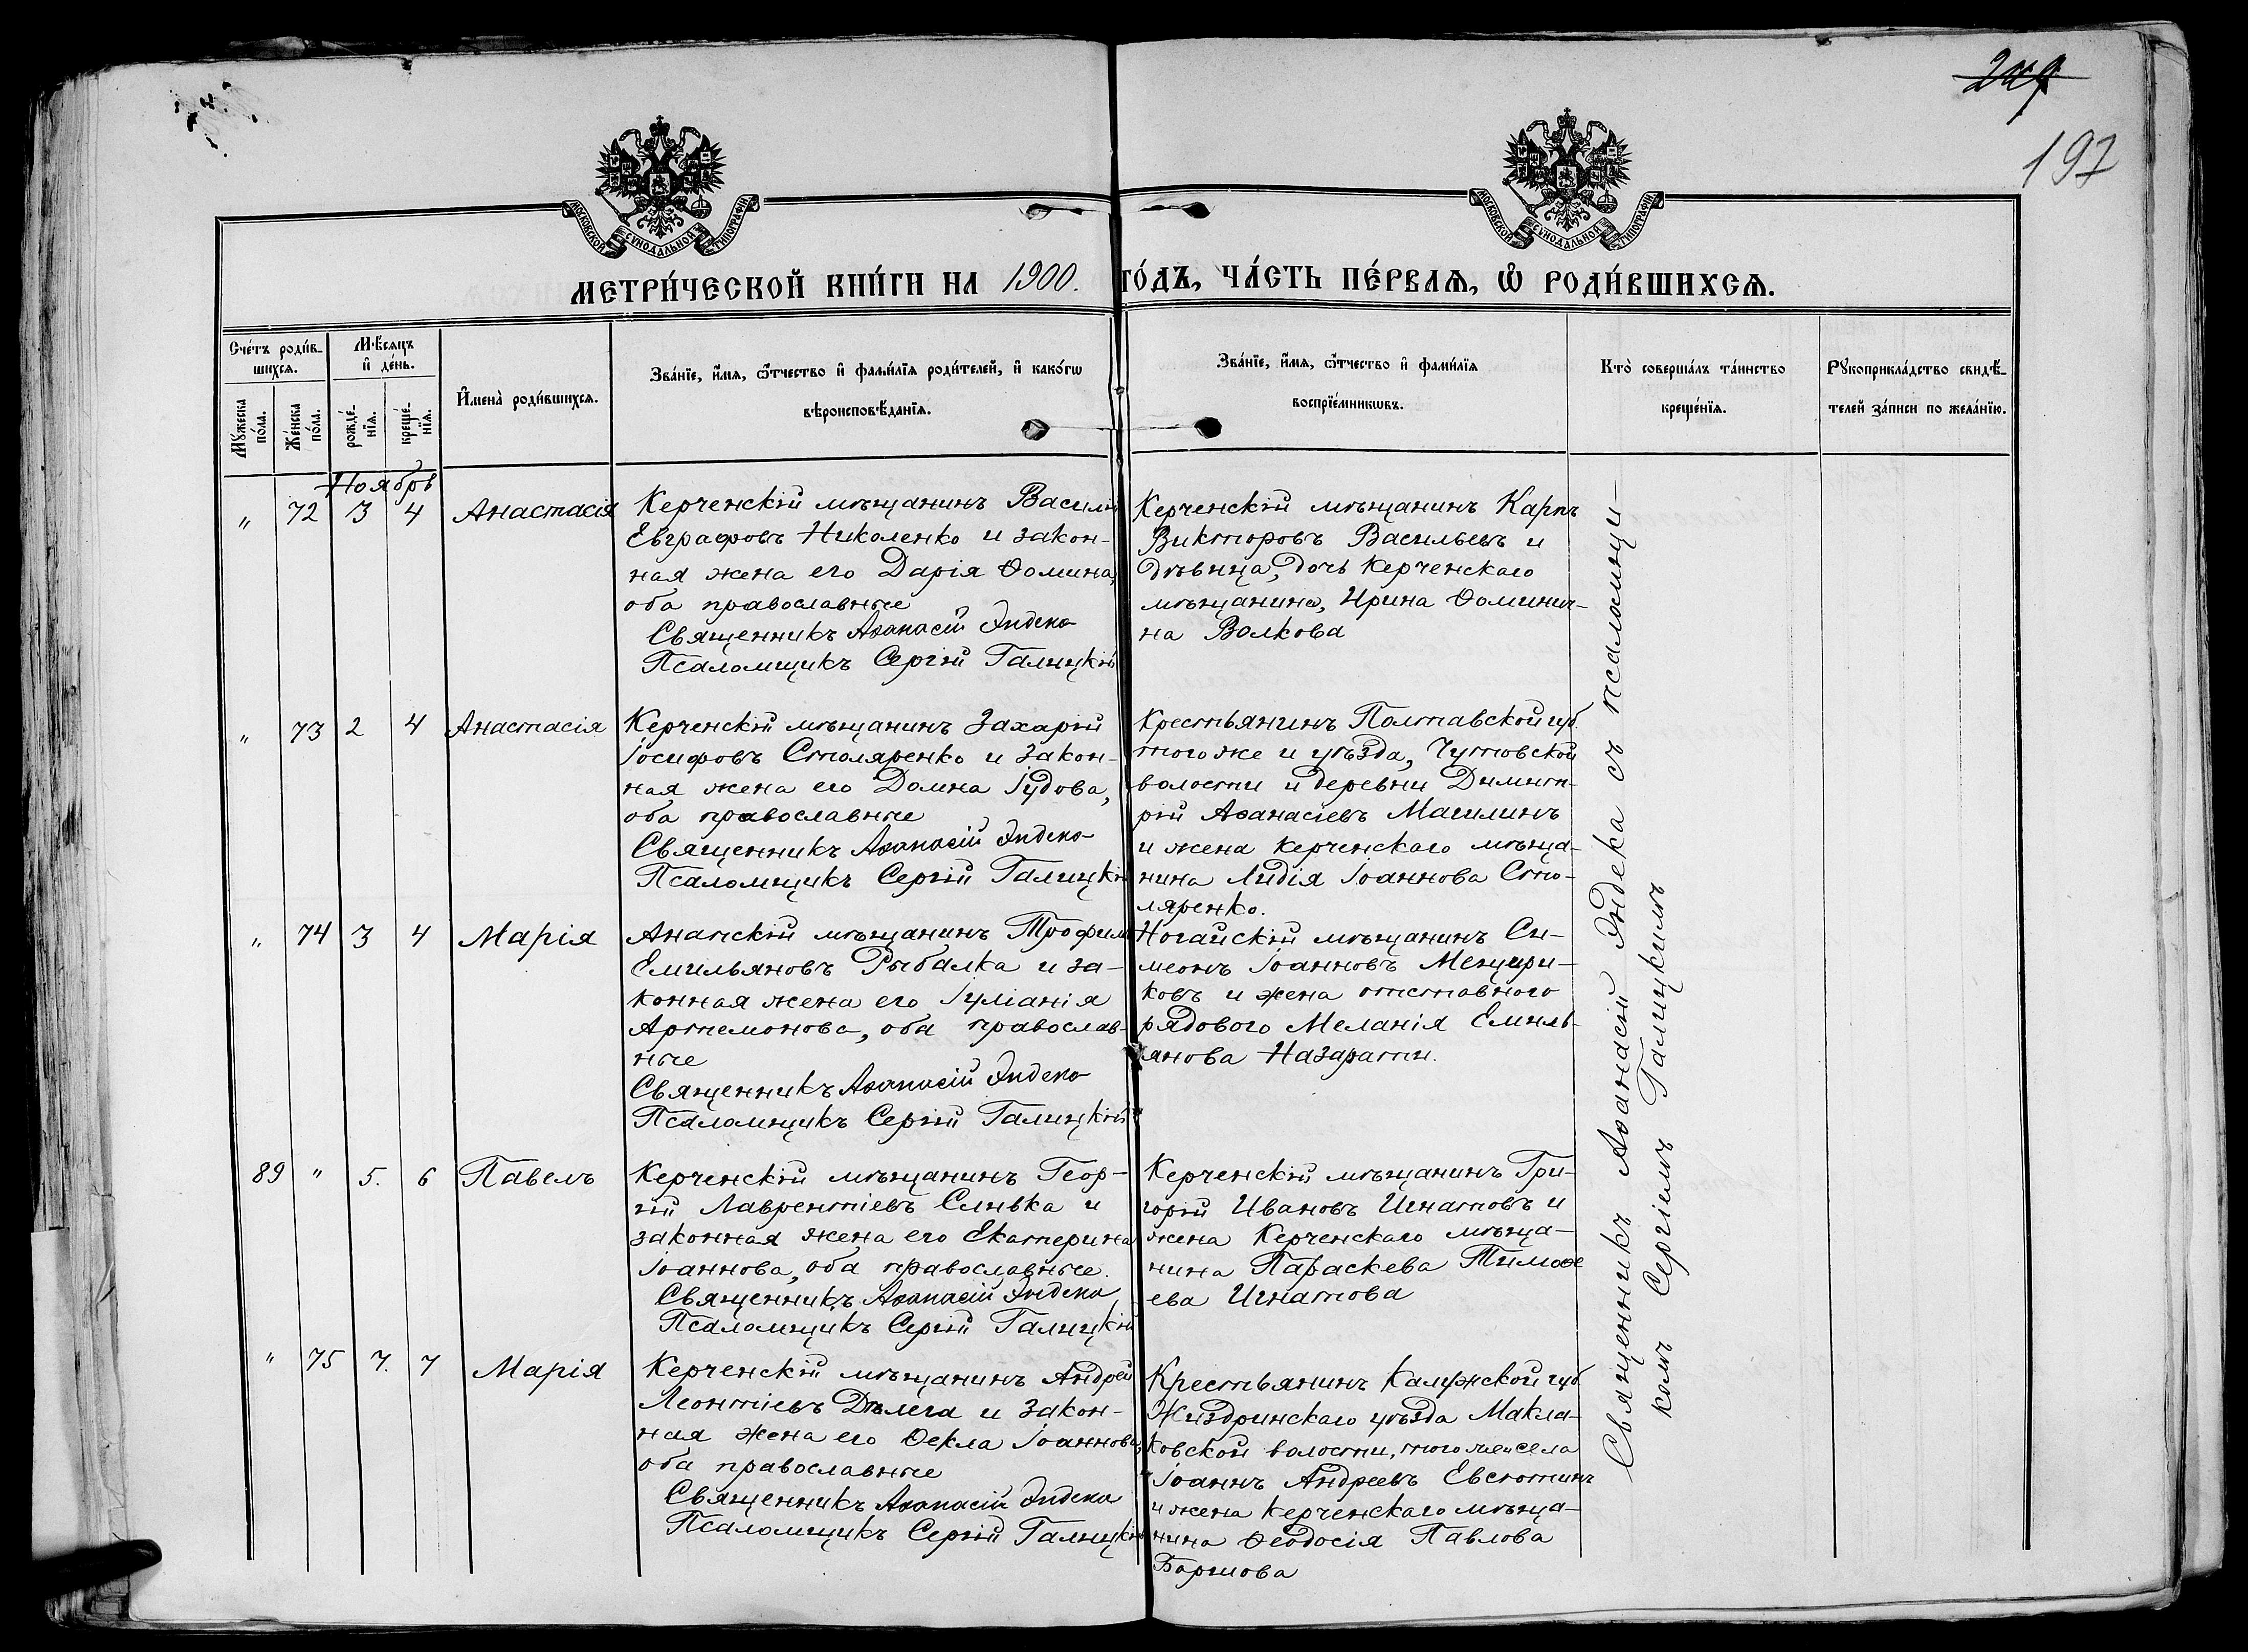 197
МОСКОВСКОЙ СѴНОДАЛЬНОЙ ТИПОГРАФІИ
МОСКОВСКОЙ СѴНОДАЛЬНОЙ ТИПОГРАФІИ
МЕТРИ́ЧЕСКОЙ КНИ́ГИ НА 1900. ГО́ДЪ, ЧА́СТЬ ПЕ́РВАѦ, Ѽ РОДИ́ВШИХСѦ.
Сче́тъ роди́в-
шихсѧ.
Мꙋ́жеска по́ла.
Же́нска по́ла.
Мѣ́сѧцъ
и҆ де́нь.
рожде́-
нїѧ.
креще́-
нїѧ.
И҆мена̀ роди́вшихсѧ.
Зва́нїе, и҆́мѧ, ѻ҆́тчество и҆ фами́лїѧ роди́телей, и҆ како́гѡ
вѣроисповѣ́данїѧ.
Зва́нїе, и҆́мѧ, ѻ҆́тчество и҆ фами́лїѧ
воспрїе́мникѡвъ.
Кто̀ соверша́лъ та́инство
креще́нїѧ.
Рꙋкоприкла́дство свидѣ́-
телей за́писи по жела́нїю.
Ноябрь
" 72 3 4 Анастасія
Керченскій мѣщанинъ Василій
Евграфовъ Николенко и закон-
ная жена его Дарія Ѳомина,
оба православные
Священникъ Аѳанасій Эндека
Псаломщикъ Сергій Галицкій
Керченскій мѣщанинъ Карпъ
Викторовъ Васильевъ и
дѣвица, дочь Керченскаго
мѣщанина, Ирина Ѳоминич-
на Волкова
" 73 2 4 Анастасія
Керченскій мѣщанинъ Захарій
Іосифовъ Столяренко и закон-
ная жена его Домна Іудова,
оба православные
Священникъ Аѳанасій Эндека
Псаломщикъ Сергій Галицкій
Крестьянинъ Полтавской губ.
того же и уѣзда, Чутовской
волости и деревни Димит-
рій Аѳанасіевъ Магилинъ
и жена керченскаго мѣща-
нина Лидія Іоаннова Сто-
ляренко.
" 74 3 4 Марія
Анапскій мѣщанинъ Трофимъ
Емильяновъ Рыбалка и за-
конная жена его Іуліанія
Артемонова, оба православ-
ные
Священникъ Аѳанасій Эндека
Псаломщикъ Сергій Галицкій
Ногайскій мѣщанинъ Си-
меонъ Іоанновъ Мещери-
ковъ и жена отставного
рядового Меланія Емиль-
янова Назарати.
89 " 5. 6 Павелъ
Керченскій мѣщанинъ Геор-
гій Лаврентіевъ Сливка и
законная жена его Екатерина
Іоаннова, оба православные.
Священникъ Аѳанасій Эндека
Псаломщикъ Сергій Галицкій
Керченскій мѣщанинъ Гри-
горій Ивановъ Игнатовъ и
жена Керченскаго мѣща-
нина Параскева Тимоѳе
ева Игнатова
" 75 7. 7 Марія
Керченскій мѣщанинъ Андрей
Леонтіевъ Дѣлега и закон-
ная жена его Ѳекла Іоаннова,
оба православные
Священникъ Аѳанасій Эндека
Псаломщикъ Сергій Галицкій
Крестьянинъ Калужской губ
Жиздринскаго уѣзда Макла-
ковской волости, того же села
Іоаннъ Андреевъ Евсютинъ
и жена керченскаго мѣща-
нина Ѳеодосія Павлова
Боршова
Священникъ Аѳанасій Эндека съ псаломщи-
комъ Сергіемъ Галицкимъ